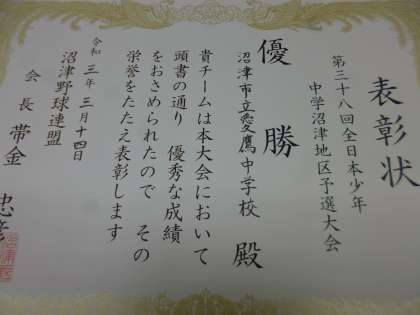 表彰状
第三十八回全日本少年
中学沼津地区予選大会
優勝
沼津市立愛鷹中学校 殿
貴チームは本大会において
頭書の通り 優秀な成績
をおさめられたので その
栄誉をたたえ表彰します
令和 三年 三月十四日
沼津野球連盟
会長 帯金 忠